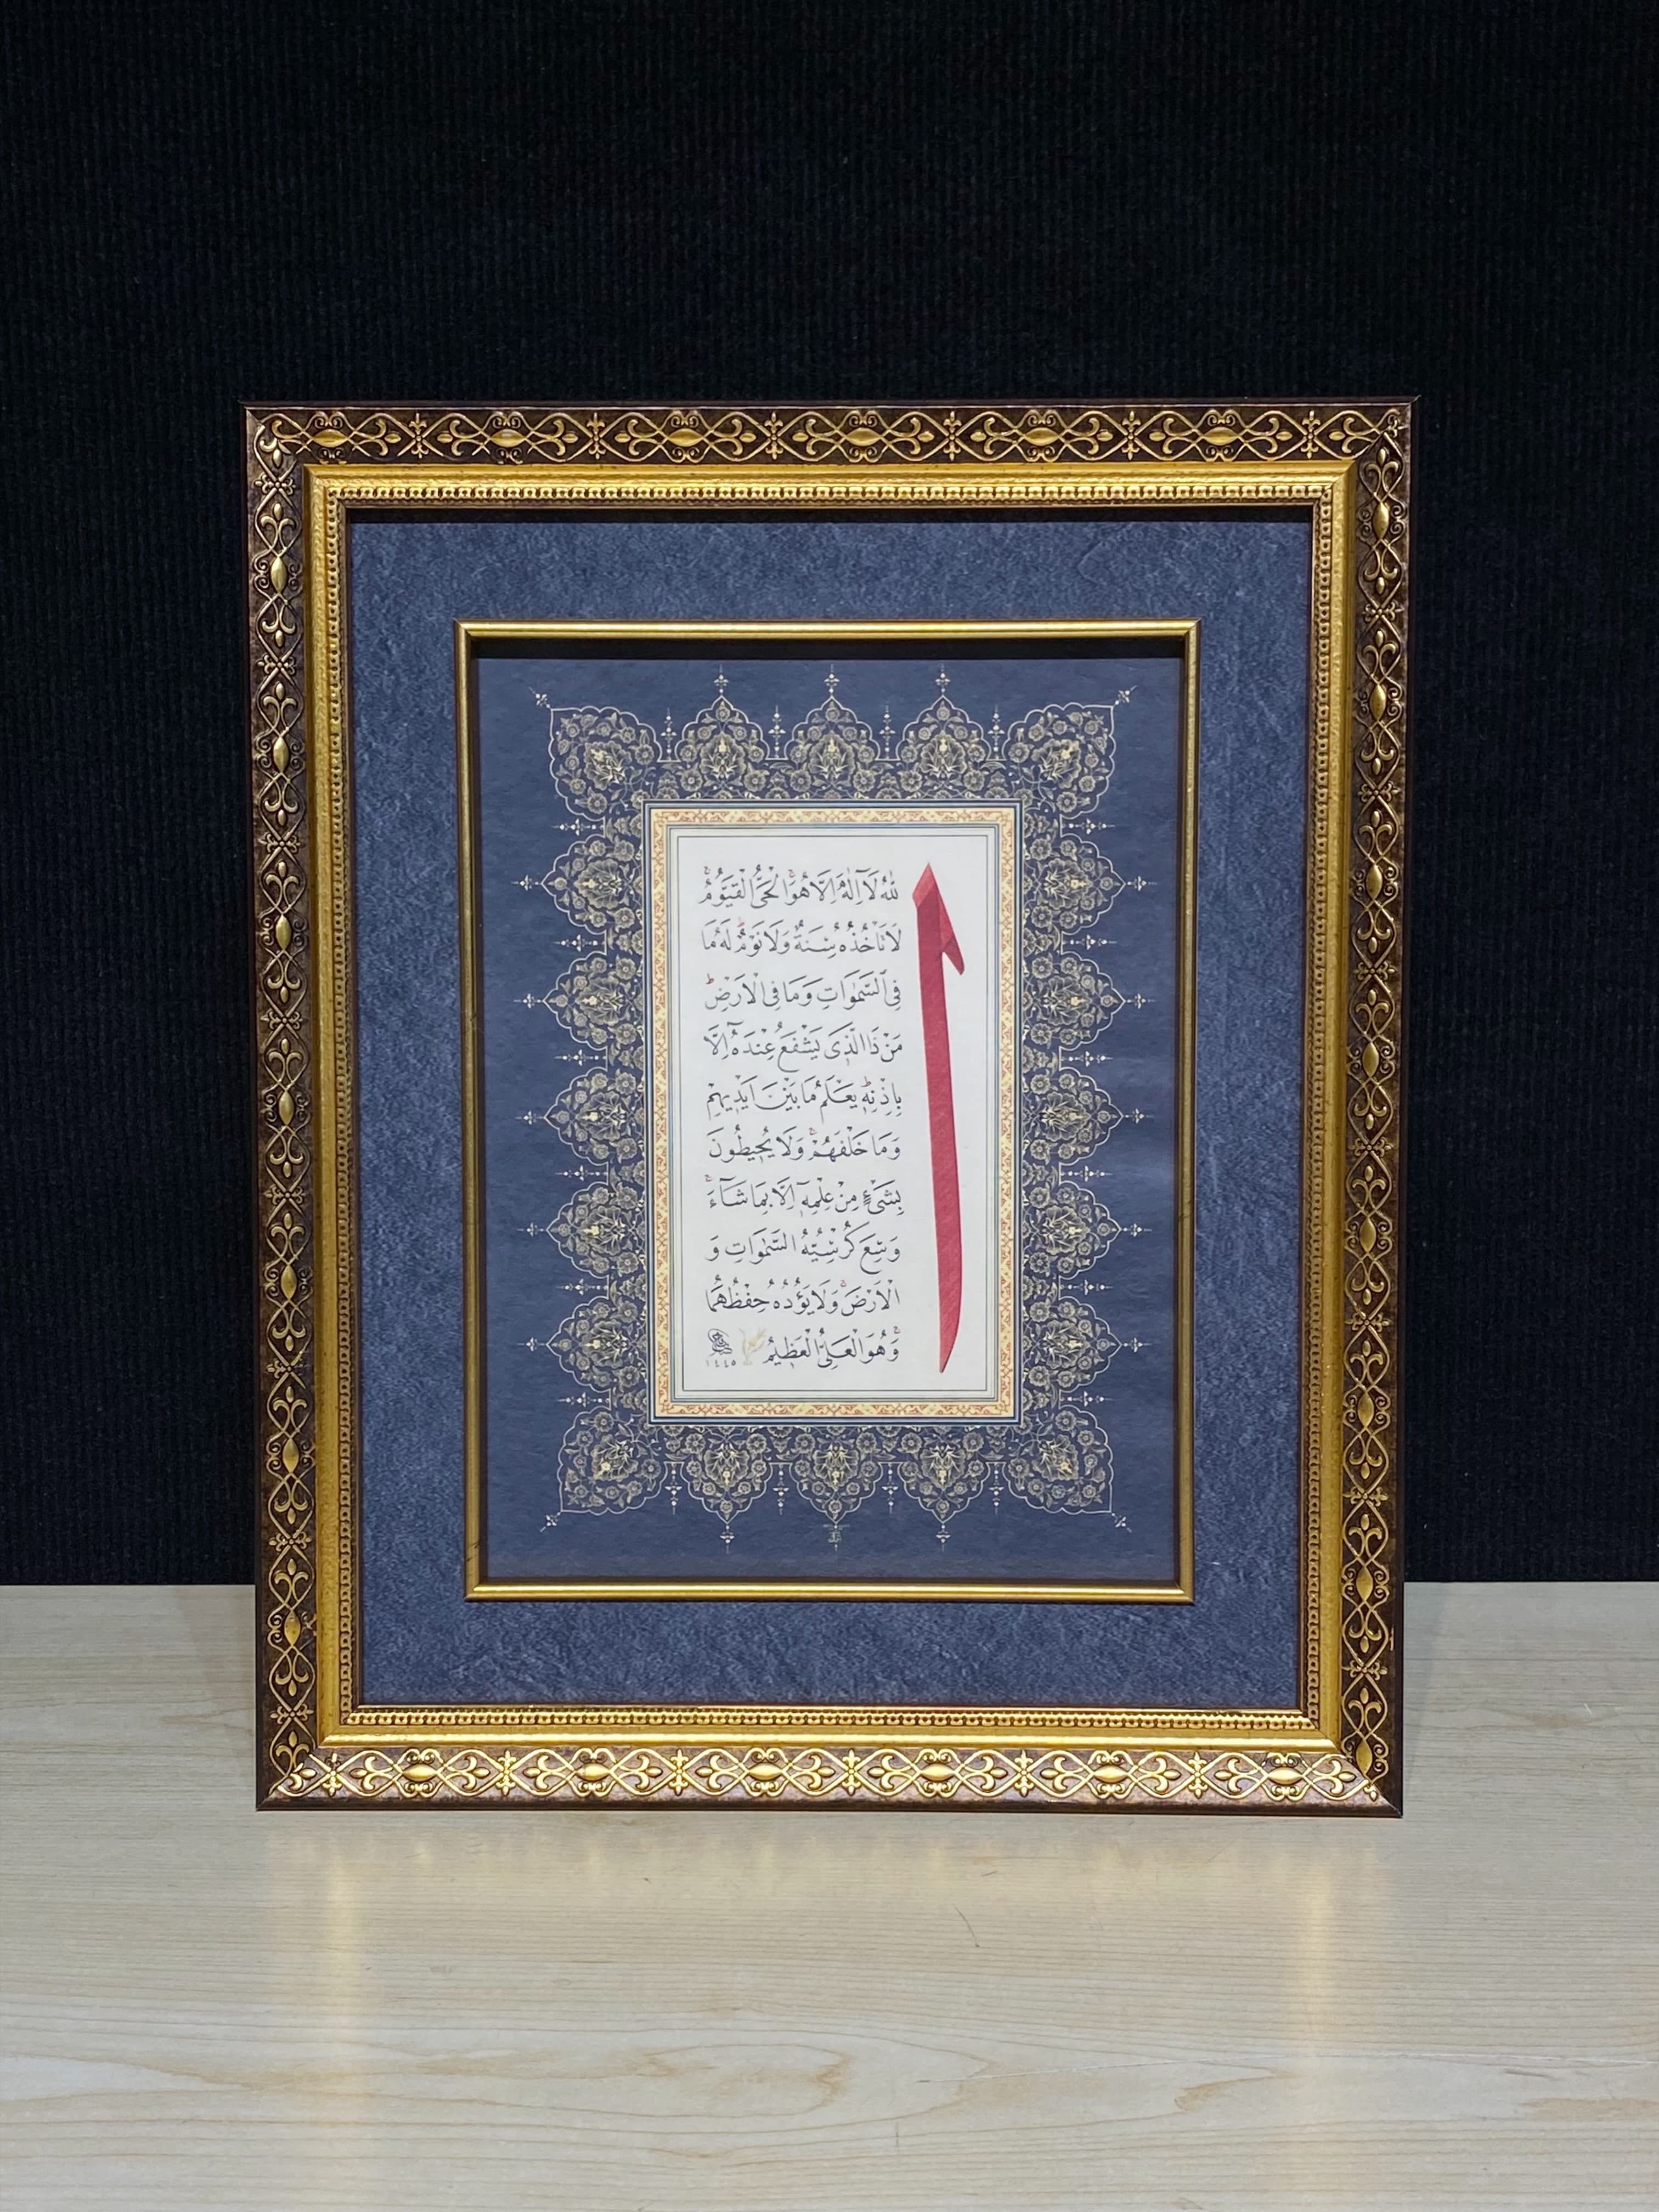 اَللّٰهُ لَٓا اِلٰهَ اِلَّا هُوَۚ اَلْحَيُّ الْقَيُّومُۚ
لَا تَأْخُذُهُ سِنَةٌ وَلَا نَوْمٌۜ لَهُ مَا
فِي السَّمٰوَاتِ وَمَا فِي الْاَرْضِۜ
مَنْ ذَا الَّذِي يَشْفَعُ عِنْدَهُٓ اِلَّا
بِاِذْنِهِۜ يَعْلَمُ مَا بَيْنَ اَيْدِيهِمْ
وَمَا خَلْفَهُمْۚ وَلَا يُحِيطُونَ
بِشَيْءٍ مِنْ عِلْمِهِٓ اِلَّا بِمَا شَٓاءَۚ
وَسِعَ كُرْسِيُّهُ السَّمٰوَاتِ وَ
الْاَرْضَۚ وَلَا يَؤُدُهُ حِفْظُهُمَا
وَهُوَ الْعَلِيُّ الْعَظِيمُ
١٤٤٥